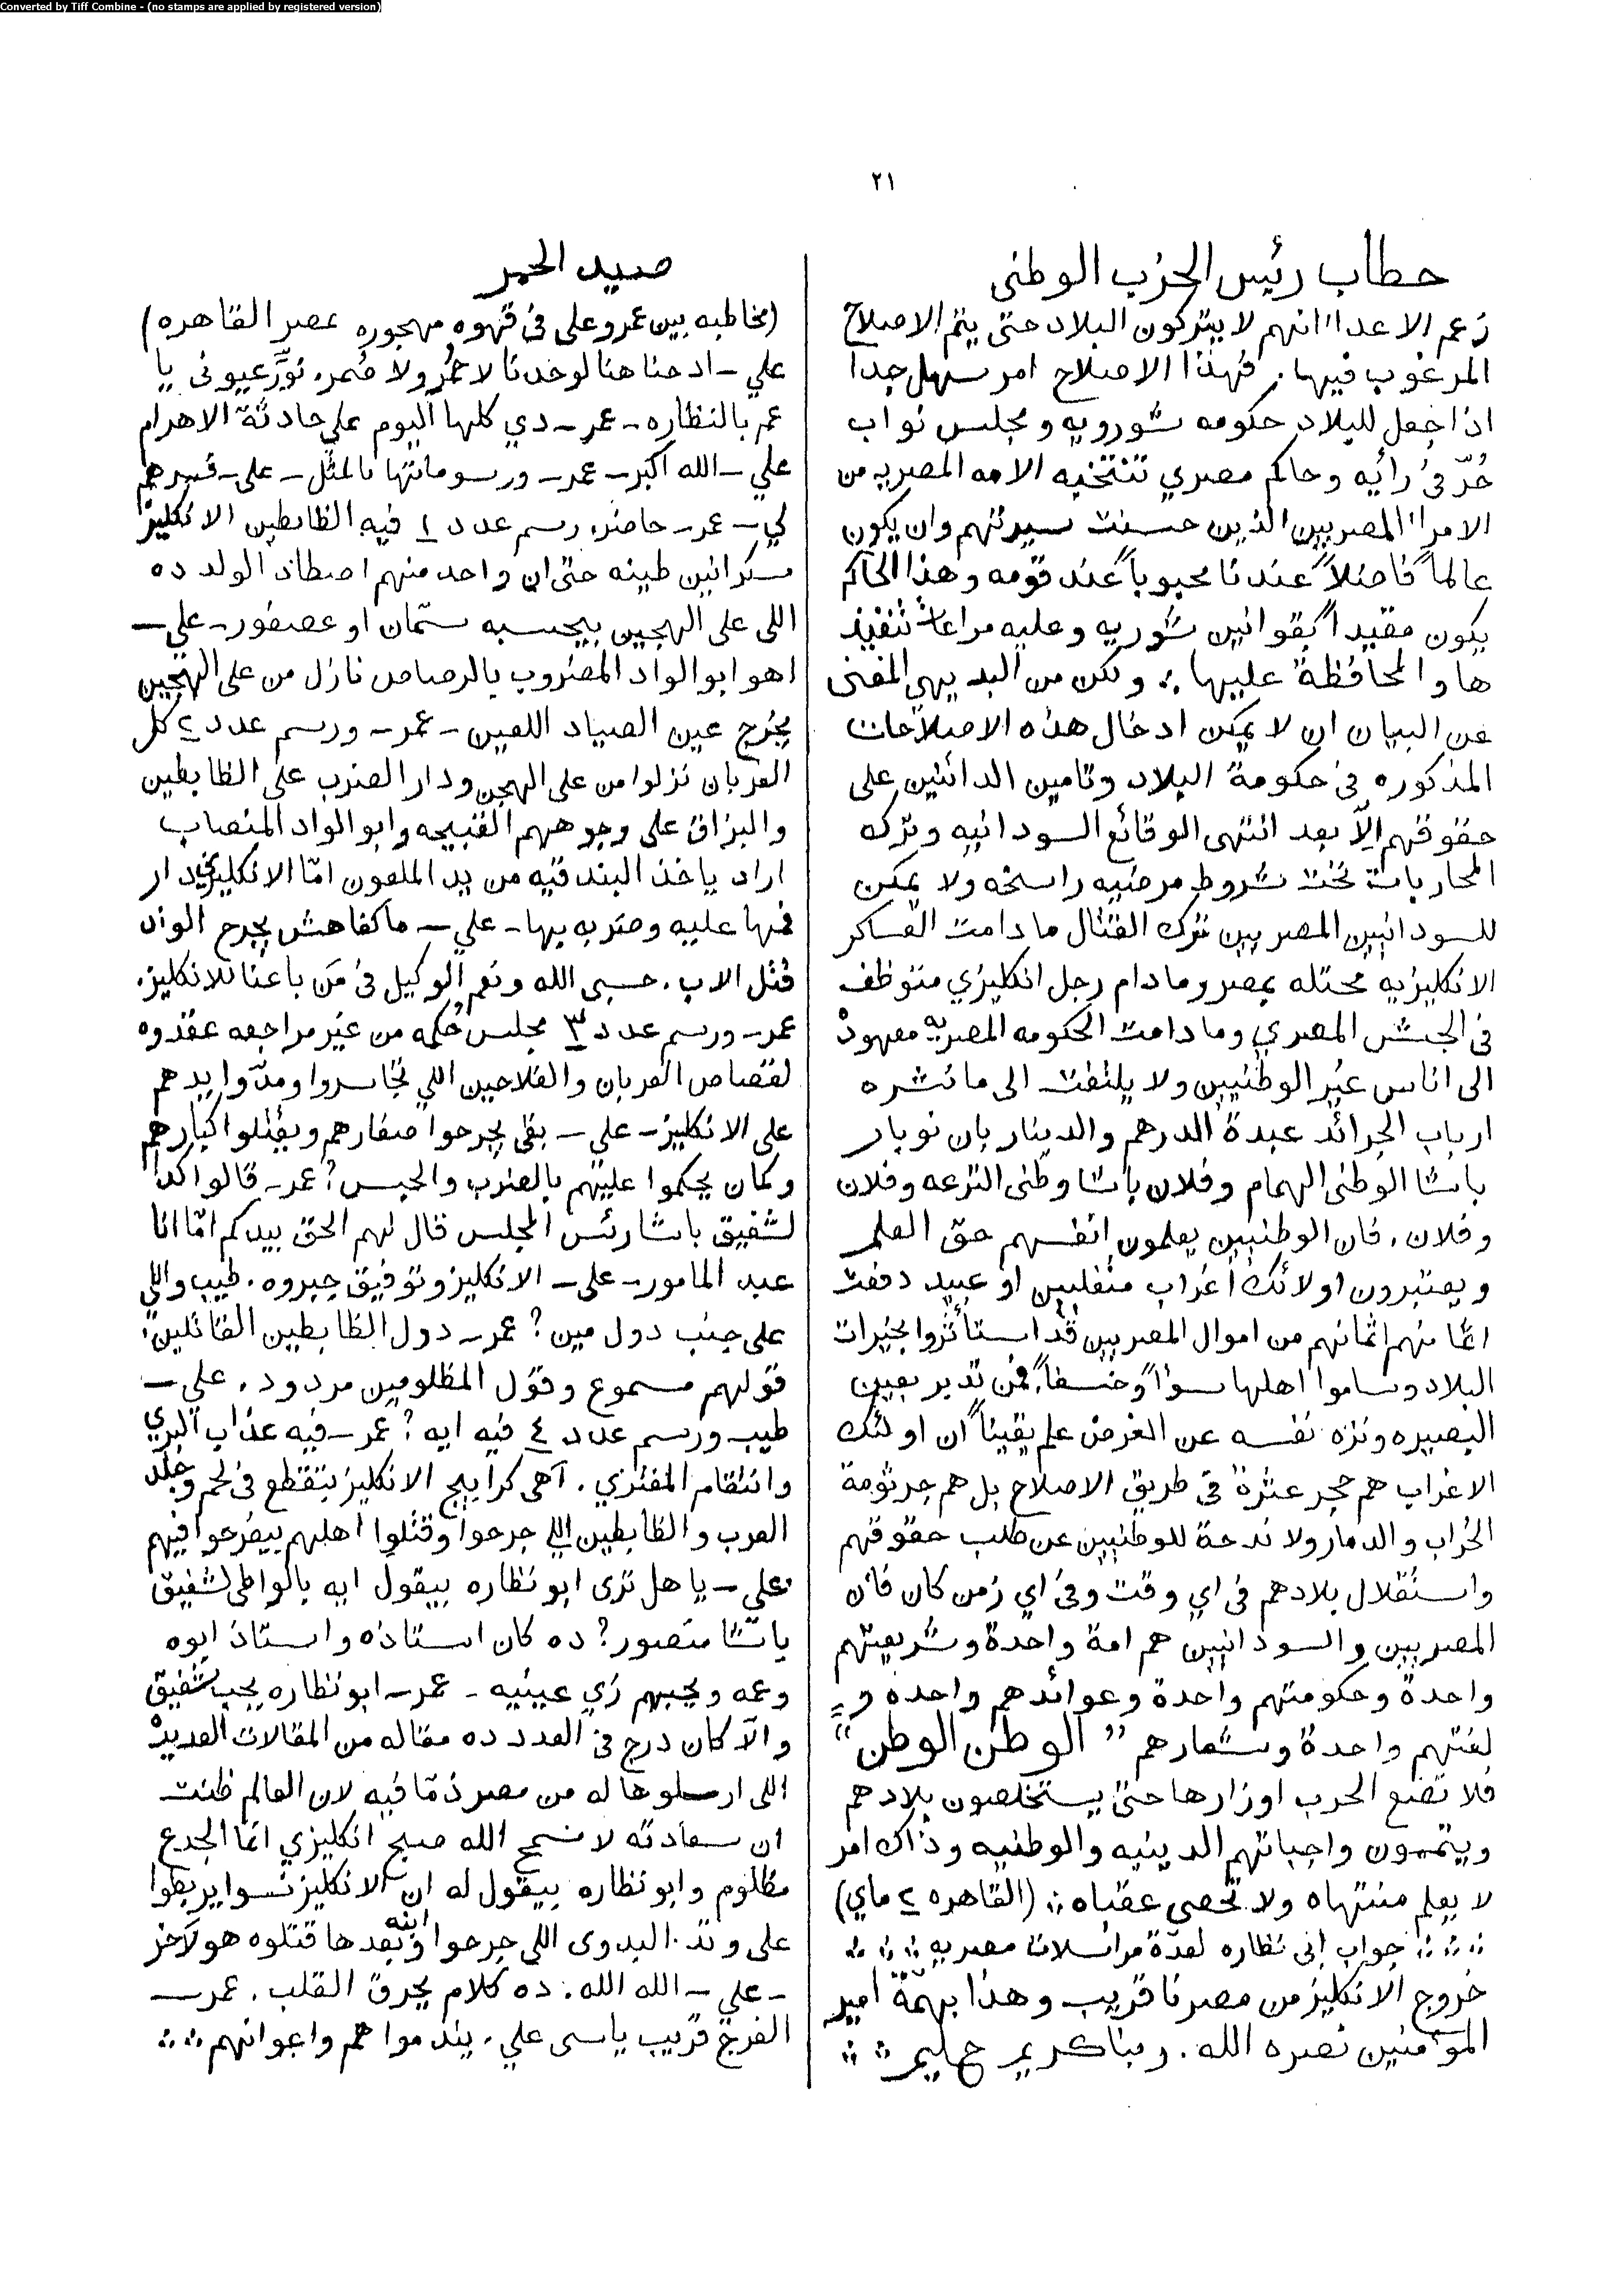 Converted by Tiff Combine - (no stamps are applied by registered version)
٢١
خطاب رئيس الحزب الوطنى
زعم الاعداا انهم لا يتركون البلاد حتى يتم الاصلاح
المرغوب فيها. فهذا الاصلاح امر سهل جدا
اذا جعل للبلاد حكومه شورويه ومجلس نواب
حُرّ فى رائيه وحاكم مصري تنتخبه الامه المصريه من
الامراا المصريين الذين حسنت سيرتهم وان يكون
عالماً فاضلاً عندنا محبوباً عند قومه وهذا الحاكم
يكون مقيداً بقوانين شوريه وعليه مراعات تنفيذ
ها والمحافظة عليها ؞ ولكن من البديهي المغنى
عن البيان ان لا يمكن ادخال هذه الاصلاحات
المذكوره فى حكومة البلاد وتامين الدائنين على
حقوقهم الّا بعد انتهى الوقائع السودانيه وتركه
المحاربات تحت شروط مرضيه راسخه ولا يمكن
للسودانيين المصريين ترك القتال ما دامت العساكر
الانكليزيه محتله بمصر وما دام رجل انكليزي متوظف
فى الجيش المصري وما دامت الحكومه المصريه معهودة
الى اناس غير الوطنيين ولا يلتفت الى ما نشره
ارباب الجرائد عبدة الدرهم والدينار بان نوبار
باشا الوطنى الهمام وفلان باشا وطنى النزعه وفلان
وفلان. فان الوطنيين يعلمون انفسهم حق العلم
ويعتبرون اولائك اغراب متغلبين او عبيد دفعت
اثمانهم من اموال المصريين قد استأثروا بخيرات
البلاد وساموا اهلها سواً وخسفاً. فمن تدبر بعين
البصيره ونزه نفسه عن الغرض علم يقيناً ان اولئك
الاغراب هم حجر عثرة فى طريق الاصلاح بل هم جرثومة
الخراب والدمار ولا ندحة للوطنيين عن طلب حقوقهم
واستقلال بلادهم فى اي وقت وفى اي زمن كان فان
المصريين والسودانيين هم امة واحدة وشريعتهم
واحدة وحكومتهم واحدة وعوائدهم واحده و
لغتهم واحدة وشعارهم " الوطن الوطن "
فلا تضع الحرب اوزارها حتى يستخلصون بلادهم
ويتممون واجباتهم الدينيه والوطنيه وذاك امر
لا يعلم منتهاه ولا تحصى عقباه ؞ (القاهره ٢ ماي)
جواب ابى نظاره لعدة مراسلات مصريه
خروج الانكليز من مصرنا قريب وهذا بهمّة امير
المؤمنين نصره الله. ربنا كريم حليم
صيد الحمر
(مخاطبه بين عمر وعلى فى قهوه مهجوره بمصر القاهره)
علي – ادحنا هنا لوحدنا لا حُمُر ولا قمر. نوَّر عيونى يا
عمر بالنظاره – عمر – دي كلها اليوم على حادثة الاهرام
علي – الله اكبر – عمر – ورسوماتها بالمثل – على – فسرهم
لي – عمر – حاضر. رسم عدد ١ فيه الظابطين الانكليز
سكرانين طينه حتى ان واحد منهم اصطاد الولد ده
اللى على الهجين بيحسبه سمّان او عصفور – علي –
اهو ابو الواد المضروب بالرصاص نازل من على الهجين
يخرج عين الصياد اللعين – عمر – ورسم عدد ٢ كل
العربان نزلوا من على الهجن ودار الضرب على الظابطين
والبزاق على وجوههم القبيحه وابو الواد المنصاب
اراد ياخذ البندقيه من يد الملعون امّا الانكليزي دار
فمها عليه وضربه بها – علي – ما كفاهش بجرح الواد
قتل الاب. حسبى الله ونعم الوكيل فى مَن باعنا للانكليز.
عمر – ورسم عدد ٣ مجلس حُكمُه من غير مراجعه عقدوه
لقصاص العربان والفلاحين اللي تجاسروا ومدّوا يدهم
على الانكليز – علي – بقى يجرحوا صغارهم ويقتلوا كبارهم
وكمان يحكموا عليهم بالضرب والحبس؟ عمر – قالوا كدا
لشفيق باشا رئس المجلس قال لهم الحق بيدكم امّا انا
عبد المامور – على – الانكليز وتوفيق جبروه. طيب واللي
على جنب دول مين؟ عمر – دول الظابطين القاتلين.
قولهم مسموع وقول المظلومين مردود. علي –
طيب ورسم عدد ٤ فيه ايه؟ عمر – فيه عذاب البري
وانتقام المفترى. آهى كرابيج الانكليز بتقطع فى لحم وجلد
العرب والظابطين اللي جرحوا وقتلوا اهلهم بيفرحوا فيهم
علي – يا هل ترى ابو نظاره بيقول ايه يالواطى لشفيق
باشا منصور؟ ده كان استاذه واستاذ ابوه
وعمه ويحبهم زي عينيه – عمر – ابو نظاره يحب شفيق
والّا كان درج فى العدد ده مقاله من المقالات العديدة
اللى ارسلوها له من مصر ذمّا فيه لان العالم ظنت
ان سعادته لا سمح الله صبح انكليزي انما الجدع
مظلوم وابو نظاره بيقول له ان الانكليز نسوا يربطوا
على وتد البدوى اللي جرحوا ابنه وبعدها قتلوه هو لاخر
– علي – الله الله. ده كلام يحرق القلب. عمر –
الفرج قريب ياسى علي. يندموا هم واعوانهم